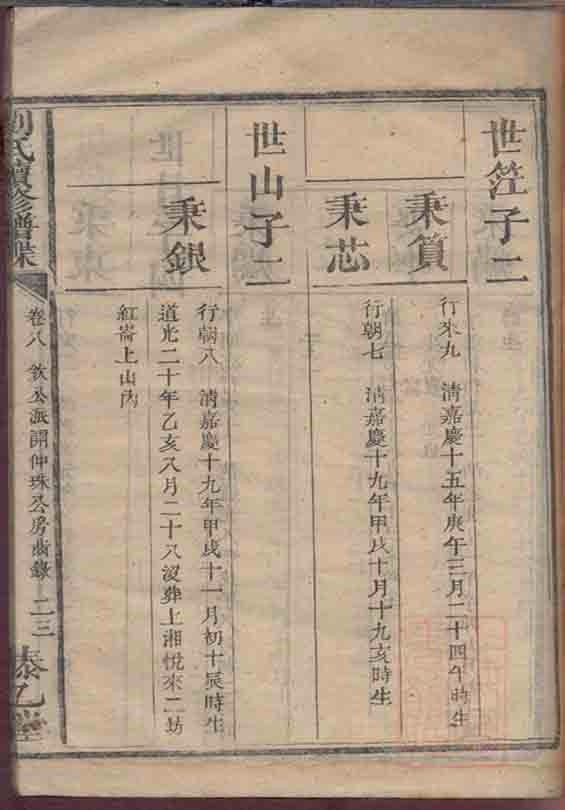 世笁子二
秉質
行來九　清嘉慶十五年庚午三月二十四午時生
秉芯
行朝七　清嘉慶十九年甲戌十月十九亥時生
世山子二
秉銀
行朝八　清嘉慶十九年甲戌十一月初十辰時生
道光二十年乙亥八月二十八沒葬上湘悅來二坊
紅崙上山內
劉氏續修譜牒
卷八　欽公派謂仲珠公房齒錄　二三
泰乙堂